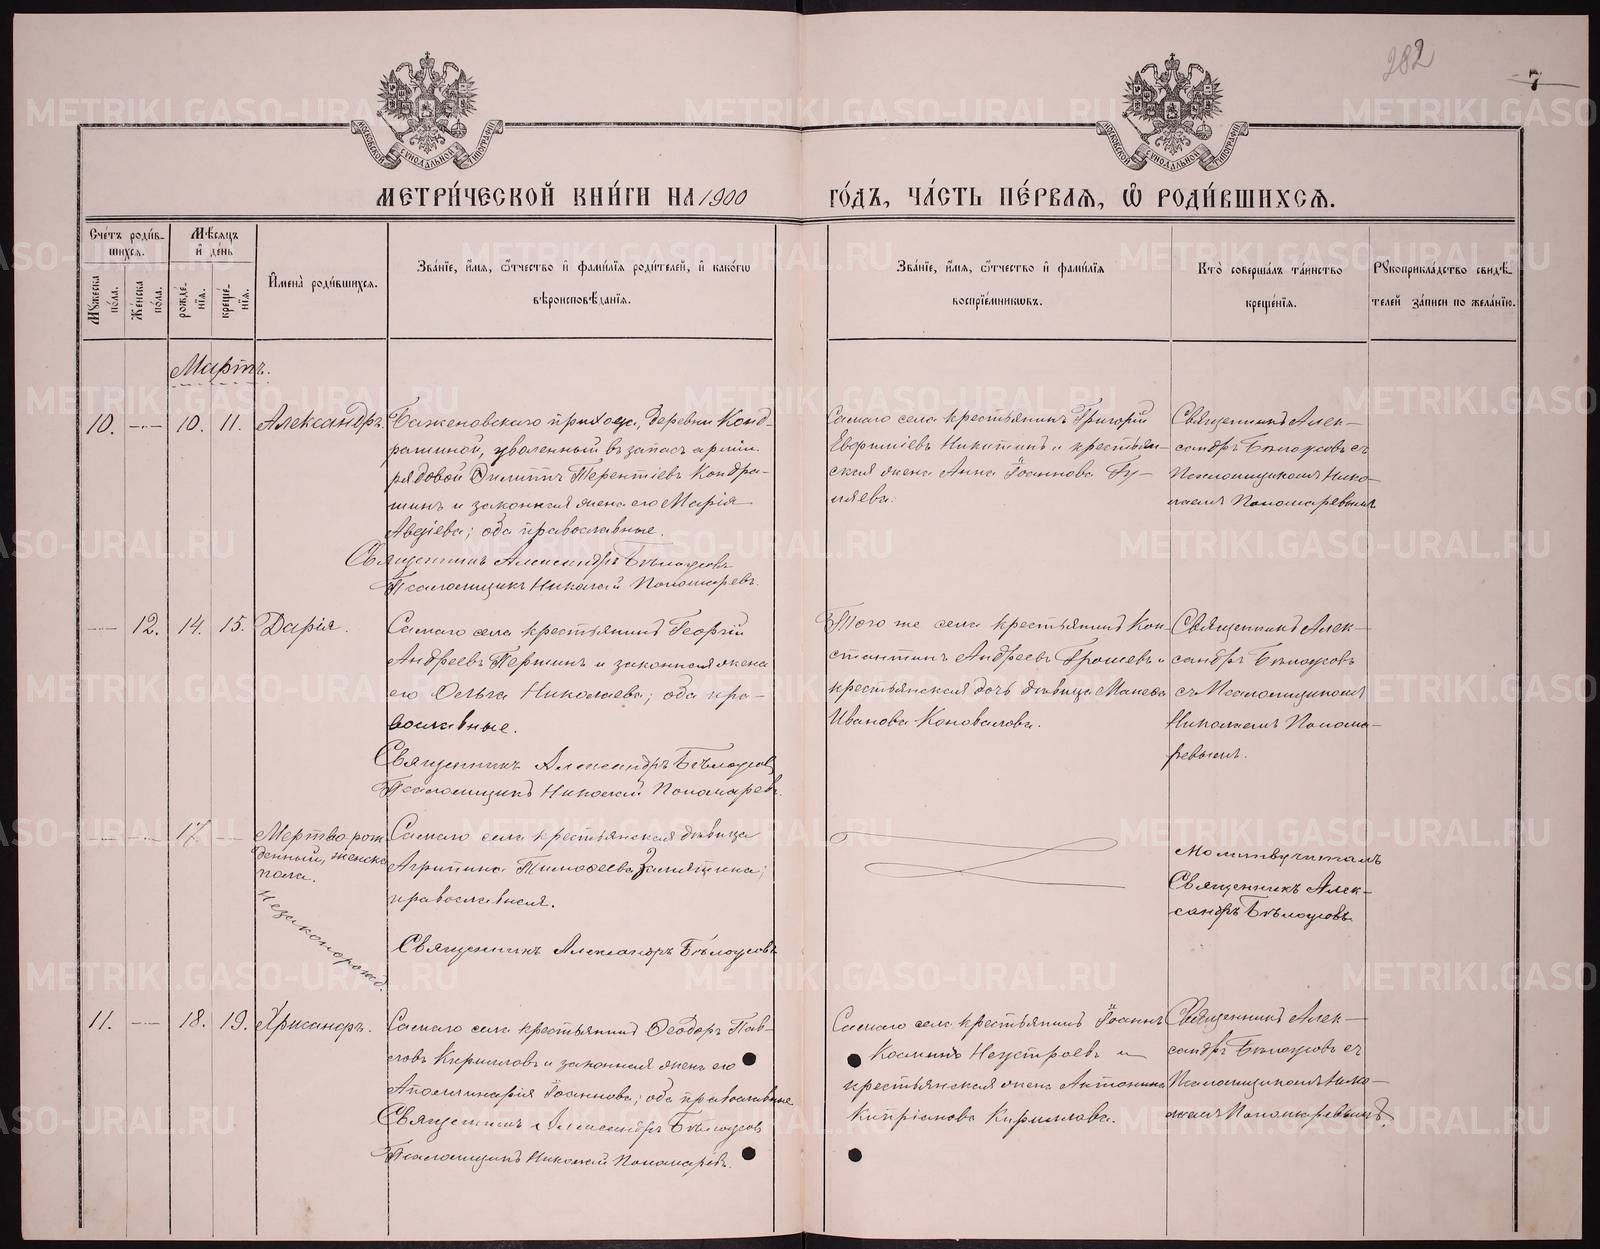 282
7
МОСКОВСКОЙ СѴНОДАЛЬНОЙ ТИПОГРАФІИ
МОСКОВСКОЙ СѴНОДАЛЬНОЙ ТИПОГРАФІИ
МЕТРИ́ЧЕСКОЙ КНИ́ГИ НА 1900 ГО́ДЪ, ЧА́СТЬ ПЕ́РВАѦ, Ѽ РОДИ́ВШИХСѦ.
Сче́тъ роди́в-
шихсѧ.
Мꙋ́жеска по́ла.
Же́нска по́ла.
Мѣ́сѧцъ
и҆ де́нь
рожде́-
нїѧ.
креще́-
нїѧ.
И҆мена̀ роди́вшихсѧ.
Зва́нїе, и҆́мѧ, ѻ҆́тчество и҆ фами́лїѧ роди́телей, и҆ какѡ́гѡ
вѣроисповѣ́данїѧ.
Зва́нїе, и҆́мѧ, ѻ҆́тчество и҆ фами́лїѧ
воспрїе́мникѡвъ.
Кто̀ соверша́лъ та́инство
креще́нїѧ.
Рꙋкоприкла́дство свидѣ́-
телей за́писи по жела́нїю.
Мартъ.
10. — 10. 11. Александръ.
Баженовскаго прихода, деревни Конд-
рашиной, уволенный въ запасъ арміи
рядовой Филиппъ Терентіевъ Кондра-
шинъ и законная жена его Марія
Авдіева; оба православные.
Священникъ Александръ Бѣлоусовъ
Псаломщикъ Николай Пономаревъ.
Самаго села крестьянинъ Григорій
Никитинъ и крестьян-
ская жена Анна Іоаннова Гу-
ляева.
Священникъ Алек-
сандръ Бѣлоусовъ съ
Псаломщикомъ Нико-
лаемъ Пономаревымъ
— 12. 14. 15. Дарія.
Самаго села крестьянинъ Георгій
Андреевъ Першинъ и законная жена
его Ольга Николаева; оба пра-
вославные.
Священникъ Александръ Бѣлоусовъ
Псаломщикъ Николай Пономаревъ.
Того же села крестьянинъ Кон-
стантинъ Андреевъ и
крестьянская дочь дѣвица
Иванова Коновалова.
Священникъ Алек-
сандръ Бѣлоусовъ
съ Псаломщикомъ
Николаемъ Понома-
ревымъ.
— — 17. — Мертворож-
денный, женска
пола.
Незаконорожд.
Самаго села крестьянская дѣвица
Агрипина Тимофеева Замятина;
православная.
Священникъ Александръ Бѣлоусовъ
Молитву читалъ
Священникъ Алек-
сандръ Бѣлоусовъ
11. — 18. 19. Хрисанфъ.
Самаго села крестьянинъ Феодоръ Пав-
ловъ Кирилловъ и законная жена его
Аполлинарія Іоаннова; оба православные
Священникъ Александръ Бѣлоусовъ
Псаломщикъ Николай Пономаревъ.
Самаго села крестьянинъ Іоаннъ
Косминъ Неустроевъ и
крестьянская жена Антонина
Кипріанова Кириллова.
Священникъ Алек-
сандръ Бѣлоусовъ съ
Псаломщикомъ Нико-
лаемъ Пономаревымъ.
METRIKI.GASO-URAL.RU